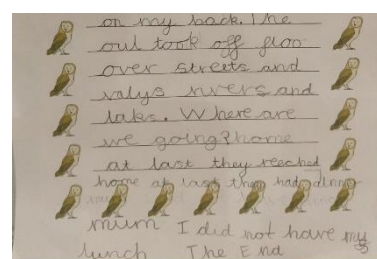 on my back. The
oul took off floo
over streets and
valys rivers and
laks. Where are
we going? home
at last they reached
home at last they had dinner
mum I did not have my
lunch The End